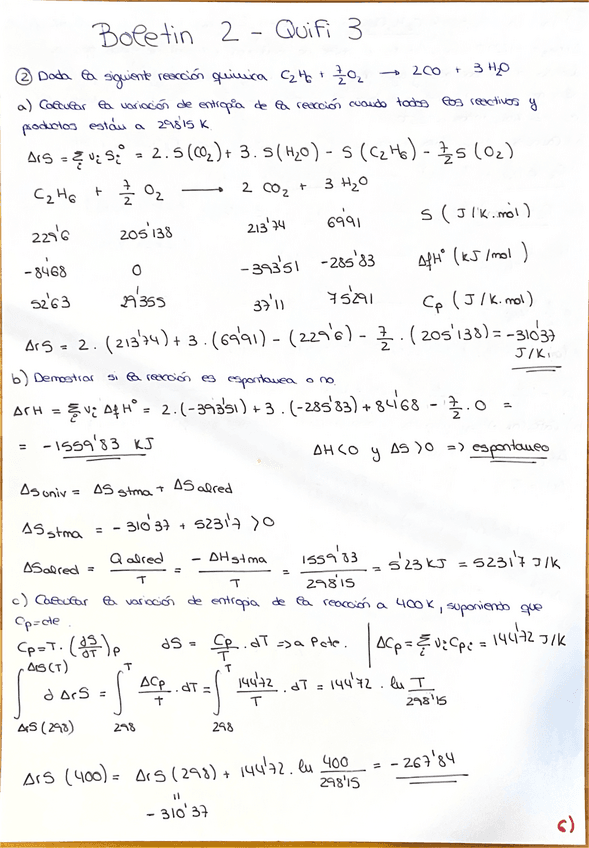 Boletin 2 - Quifi 3
② Dada la siguiente reacción quimica C₂H₆ + 7/2 O₂ → 2CO + 3H₂O
a) Calcular la variación de entropía de la reacción cuando todos los reactivos y
productos están a 298'15 K.
ΔrS = Σᵢ νᵢ Sᵢ° = 2. S(CO₂) + 3. S(H₂O) - S(C₂H₆) - 7/2 S(O₂)
C₂H₆ + 7/2 O₂ → 2 CO₂ + 3 H₂O
229'6 205'138 213'74 69'91 S (J/K.mol)
-84'68 0 -393'51 -285'83 ΔfH° (kJ/mol)
52'63 29'355 37'11 75'291 Cp (J/K.mol)
ΔrS = 2. (213'74) + 3. (69'91) - (229'6) - 7/2 . (205'138) = -310'37
J/K.
b) Demostrar si la reacción es espontanea o no.
ΔrH = Σᵢ νᵢ ΔfH° = 2.(-393'51) + 3.(-285'83) + 84'68 - 7/2 . 0 =
= -1559'83 KJ ΔH<0 y ΔS>0 => espontaneo
ΔSuniv = ΔSstma + ΔSalred
ΔSstma = -310'37 + 5231'7 >0
ΔSalred = Qalred/T = -ΔHstma/T = 1559'83/298'15 = 5'23 KJ = 5231'7 J/K
c) Calcular la variación de entropia de la reacción a 400K, suponiendo que
Cp=cte.
Cp=T.(dS/dT)p dS = Cp/T . dT => a Pcte. | ΔCp = Σᵢ νᵢ Cpᵢ = 144'72 J/K
∫_{ΔrS(298)}^{ΔrS(T)} d ΔrS = ∫_{298}^{T} ΔCp/T . dT = ∫_{298}^{T} 144'72/T . dT = 144'72 . ln T/298'15
ΔrS (400) = ΔrS (298) + 144'72. ln 400/298'15 = -267'84
"
-310'37